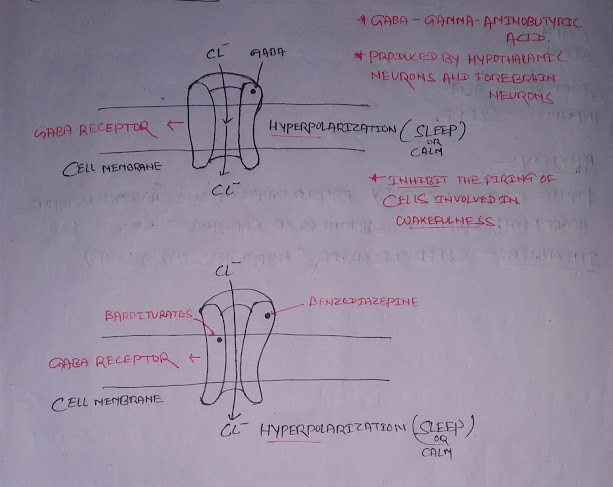 CL⁻
GABA
GABA RECEPTOR ←
HYPERPOLARIZATION (SLEEP)
OR
CALM
CELL MEMBRANE
CL⁻
* GABA - GAMMA-AMINOBUTYRIC
ACID.
* PRODUCED BY HYPOTHALAMIC
NEURONS AND FOREBRAIN
NEURONS
* INHIBIT THE FIRING OF
CELLS INVOLVED IN
WAKEFULNESS.
CL⁻
BARBITURATES
BENZODIAZEPINE
GABA RECEPTOR ←
CELL MEMBRANE
CL⁻ HYPERPOLARIZATION (SLEEP)
OR
CALM